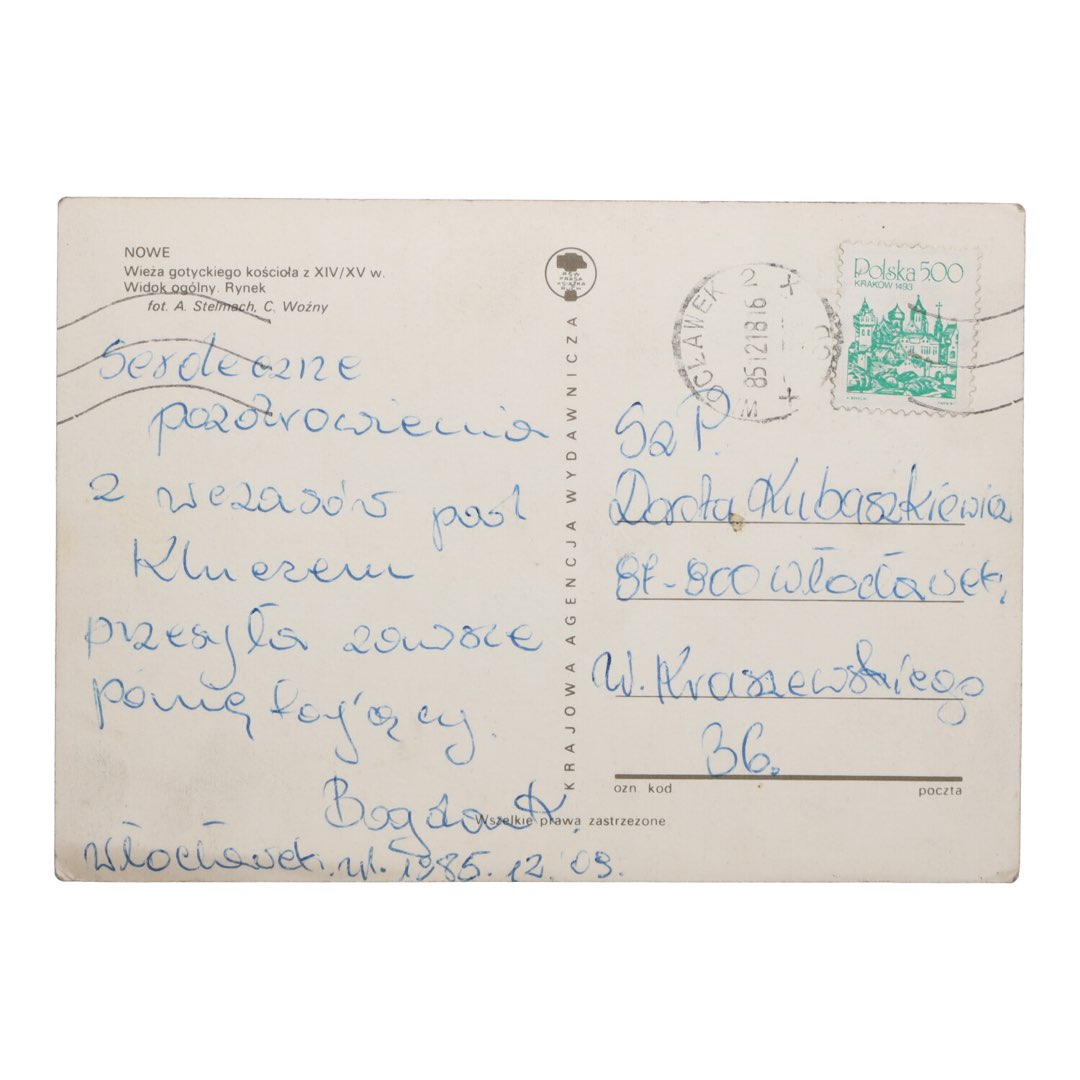 NOWE
Wieża gotyckiego kościoła z XIV/XV w.
Widok ogólny. Rynek
fot. A. Stelmach, C. Woźny
Serdeczne
pozdrowienia
z wczasów pod
Kluczem
przesyła zawsze
pamiętający.
Bogdan K.
Włocławek. 1985.12.09.
RSW
PRASA
KSIĄŻKA
RUCH
KRAJOWA AGENCJA WYDAWNICZA
Wszelkie prawa zastrzeżone
OCŁAWEK 2
85121816
Polska 5.00
KRAKÓW 1493
Sz P.
Dorota Kubaszkiewicz
87-800 Włocławek,
Kraszewskiego
36.
ozn. kod
poczta